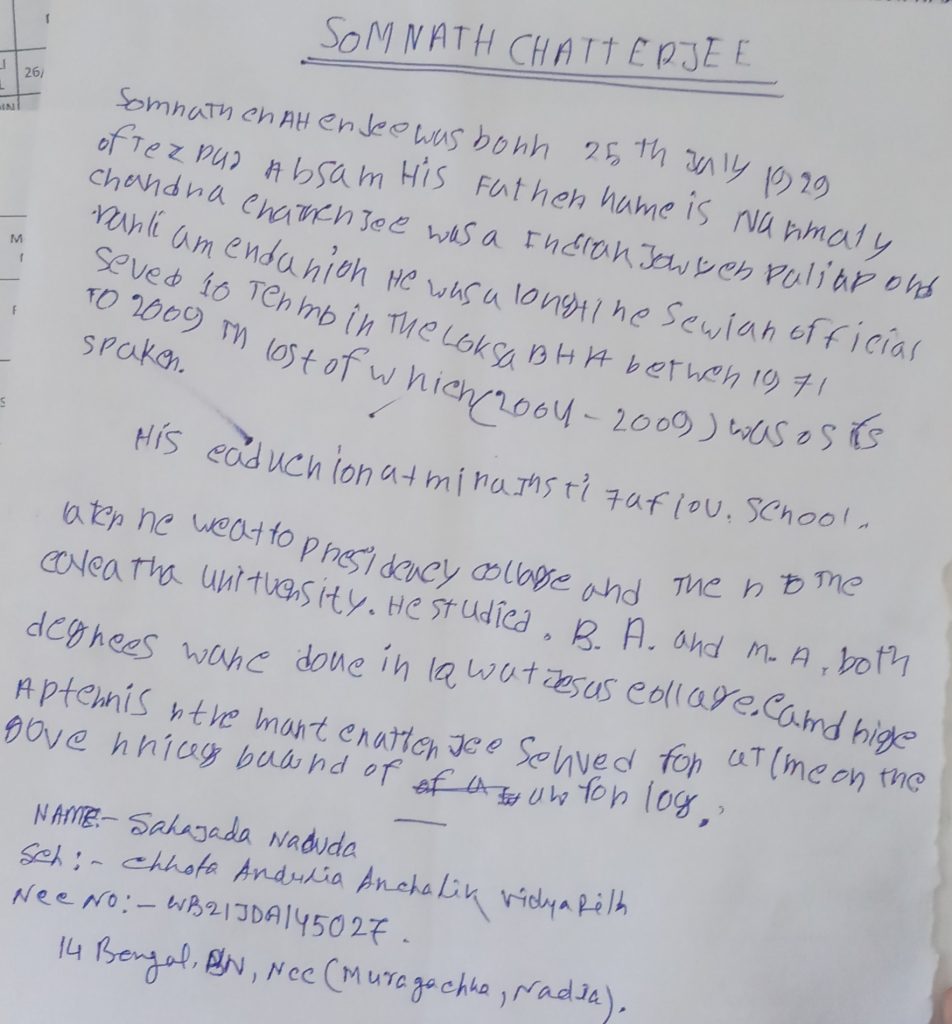 SOMNATH CHATTERJEE
Somnath enAHenJee was bonh 25 th July 1929
of Tez pur Absam His Father name is Nanmaly
chandna enatten Jee was a Indian Jowyen paliap ond
panli amendanion He was a longti ne Sewian official
Seved 10 Tenmb in The LOKSABHA betwen 1971
To 2009 Th lost of w hich (2004 - 2009) was os its
spaken.
His eaduchion at mina Insti tatiou. School.
aten he weat to presidency collage and The n to The
calea tha unituensity. He studied. B. A. and M. A, both
degnees wane done in la wat Jesus collage. Camdnige
Aptennis n the mant enatten Jee Senved fon at ime on the
gove nnicg buand of uw fon log.
NAME:- Sahajada Naduda
Sch :- Chhota Andulia Anchalik vidyapith
Nee No:- WB21JDA145027.
14 Bengal. BN, Nee (Muragachha, Nadia).
26/
M
F